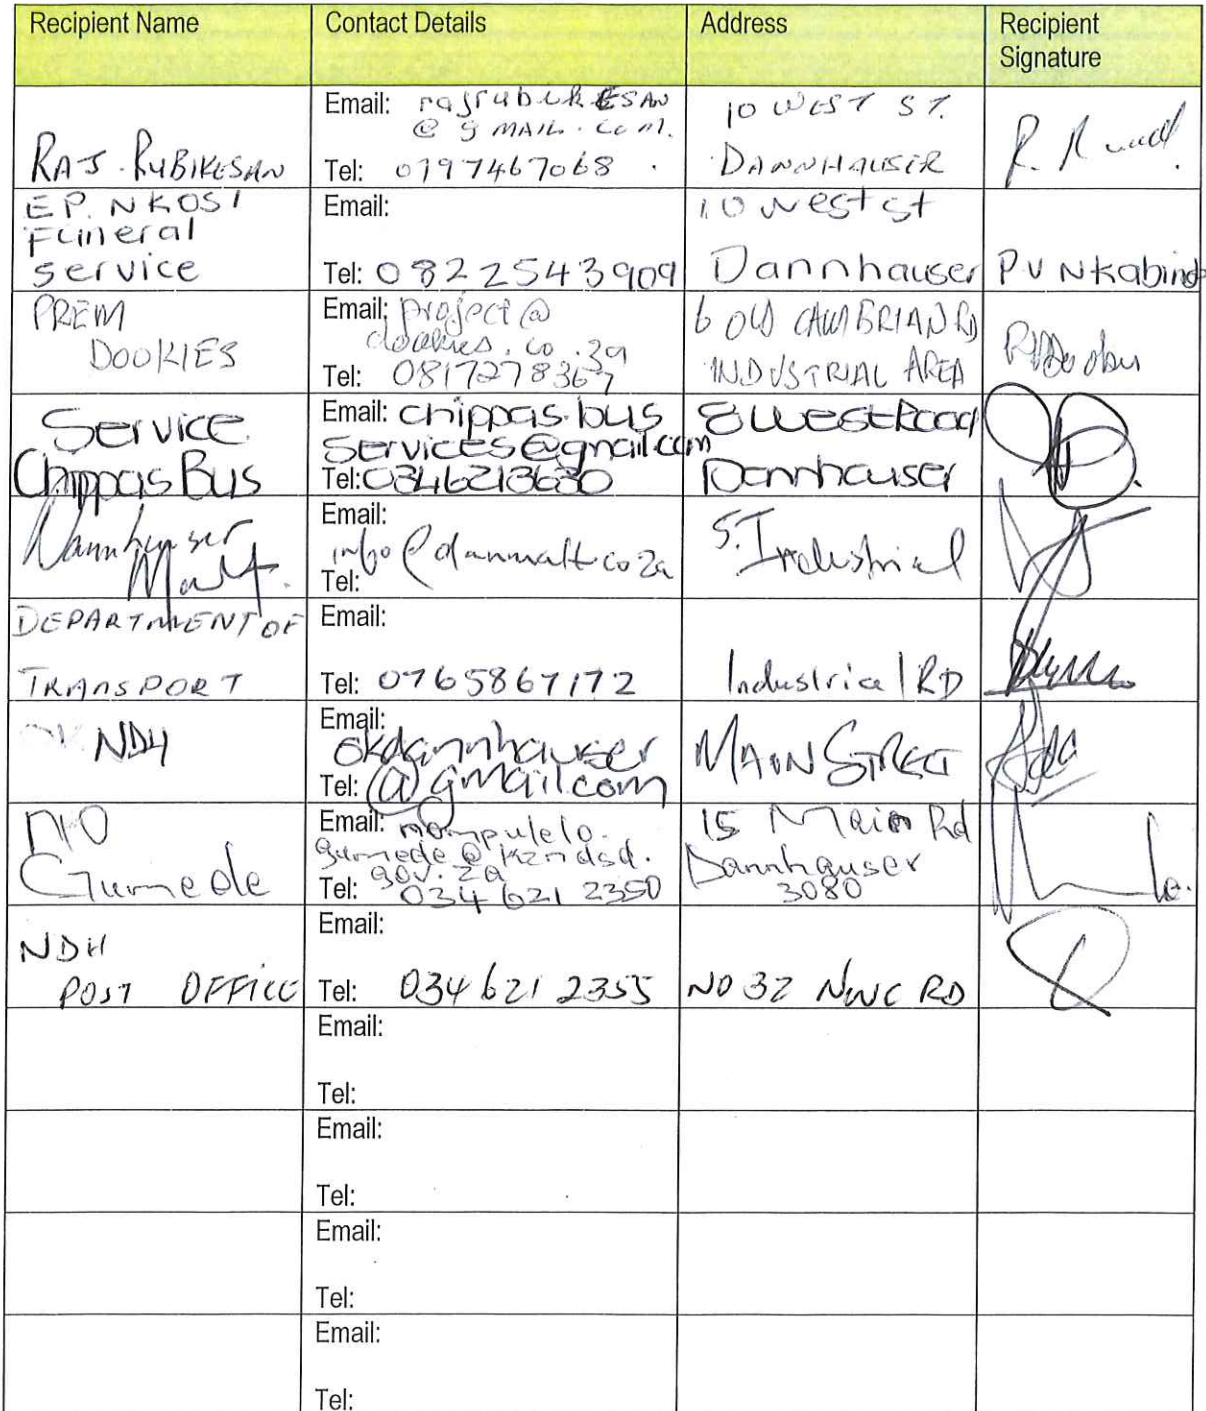 Recipient Name Contact Details Address Recipient Signature
RAJ. RUBIKESAN
Email: rajrubikESAN
@ gMAIL.com.
Tel: 0797467068
10 WEST ST.
DANNHAUSER
EP. NKOSI
Funeral
service
Email:
Tel: 08225543909
10 west st
Dannhauser
PV Nkabinde
PREM
DOOKIES
Email: project@
dookies.co.za
Tel: 0817278367
6 OLD CAMBRIAN RD
INDUSTRIAL AREA
Service
Chippas Bus
Email: chippas.bus
services@gmail.com
Tel: 0346213630
8 West Road
Dannhauser
Dannhauser
Malt.
Email:
info@danmalt.co.za
Tel:
5. Industrial
DEPARTMENT OF
TRANSPORT
Email:
Tel: 0765867172
Industrial RD
OK NDH
Email:
okdannhauser
Tel: @gmail.com
MAIN STREET
Gumede
Email: nompulelo.
gumede@kzndsd.
gov.za
Tel: 034 621 2350
15 Main Rd
Dannhauser
3080
NDH
POST OFFICE
Email:
Tel: 034 621 2355
NO 32 NWC RD
Email:
Tel:
Email:
Tel:
Email:
Tel:
Email:
Tel: